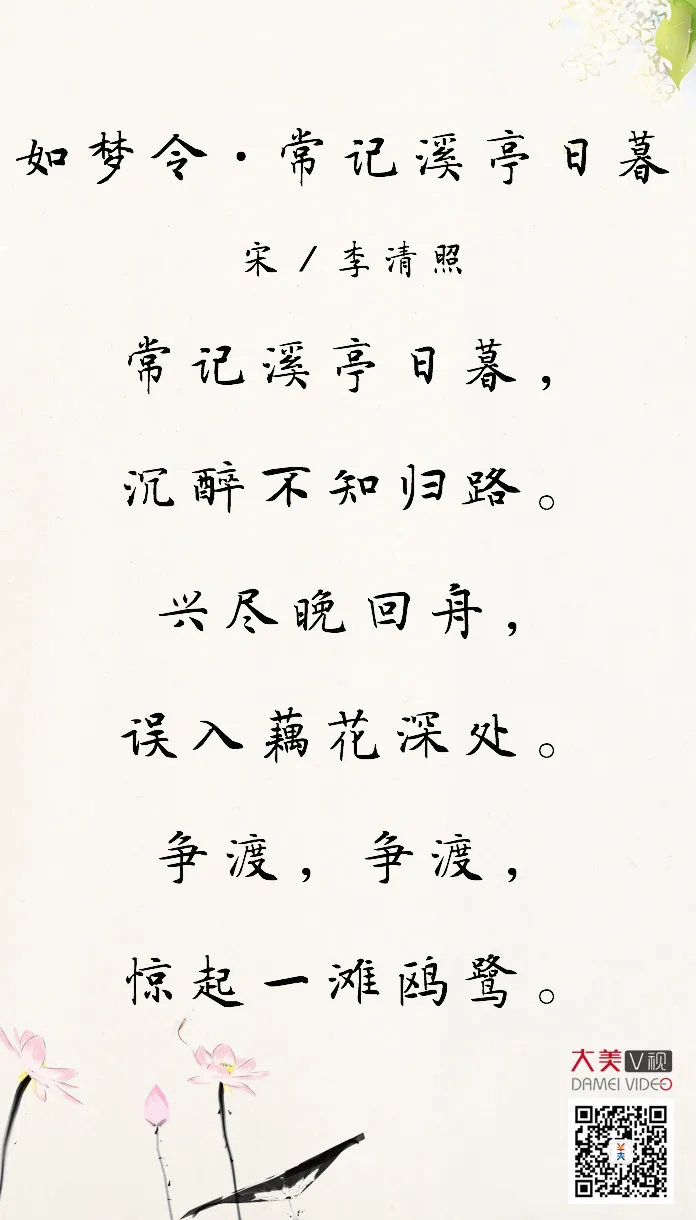 如梦令·常记溪亭日暮
宋/李清照
常记溪亭日暮，
沉醉不知归路。
兴尽晚回舟，
误入藕花深处。
争渡，争渡，
惊起一滩鸥鹭。
大美V视
DAMEI VIDEO